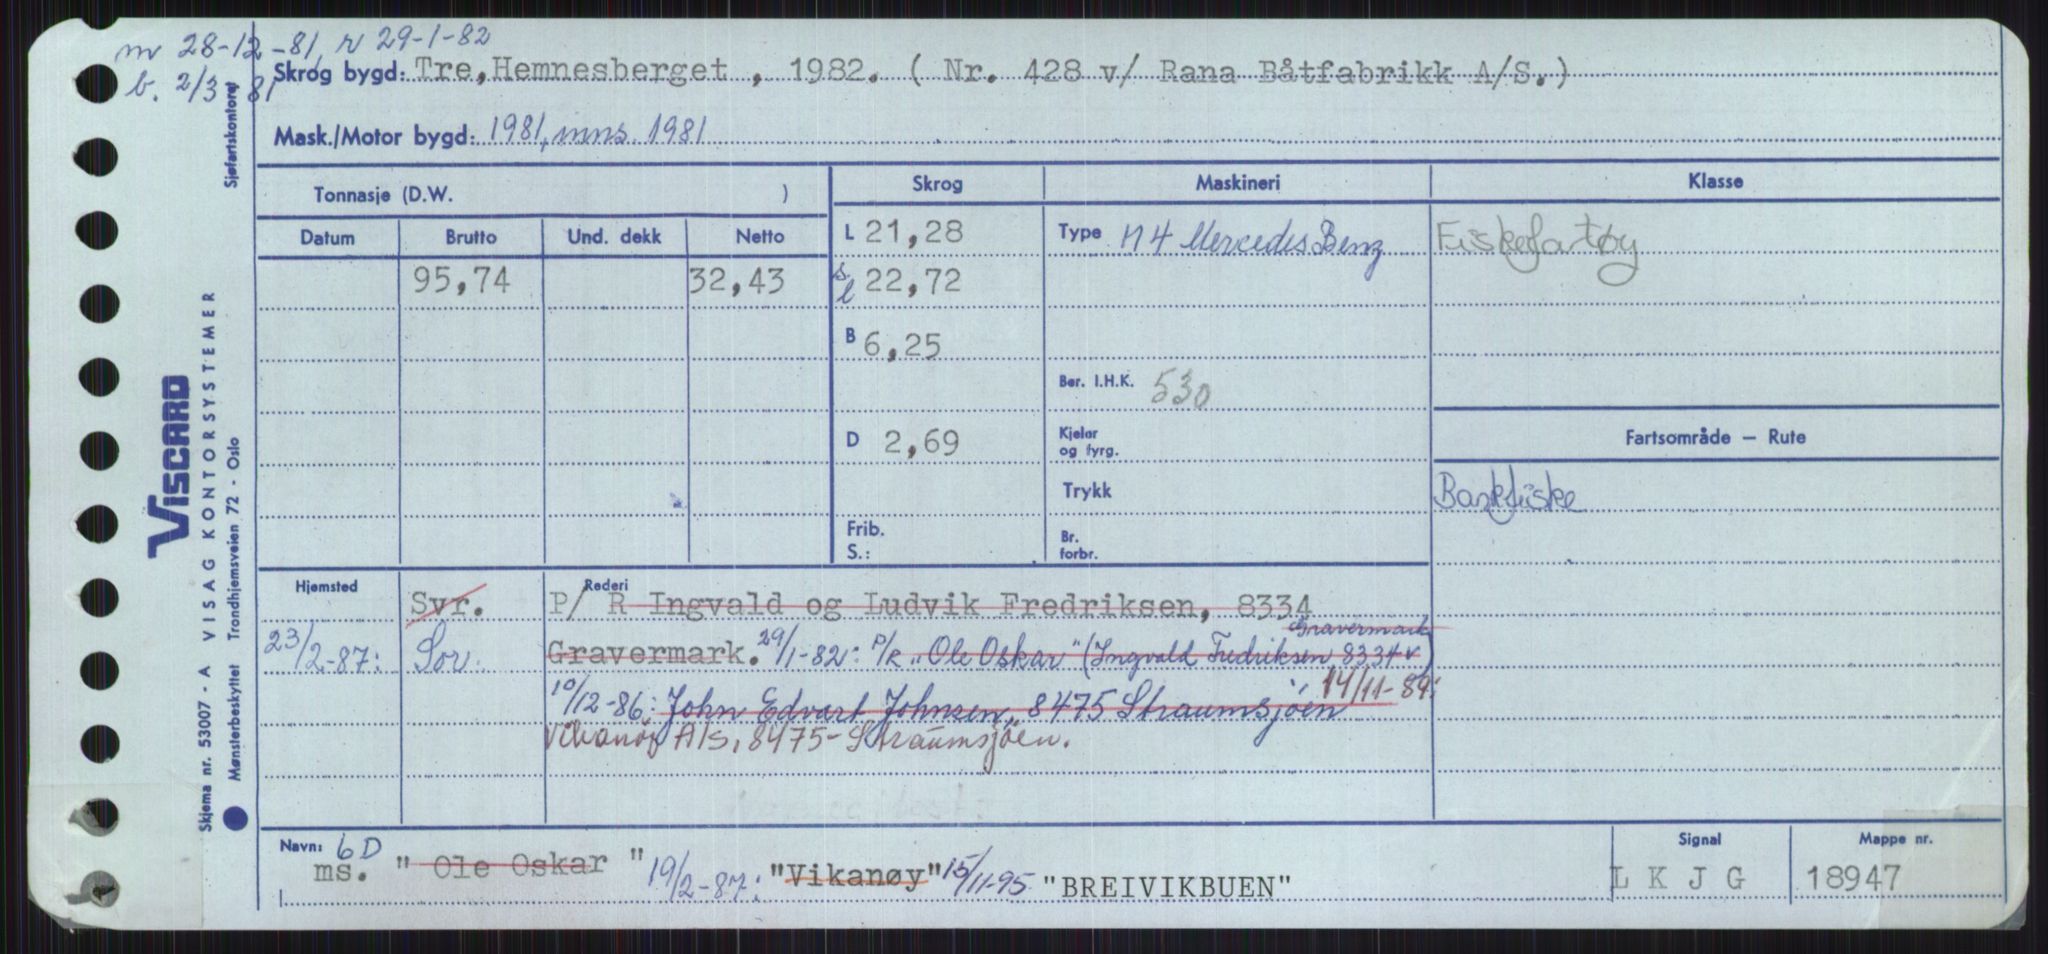 m 28-12-81, r 29-1-82
b. 2/3-81
Skrog bygd: Tre, Hemnesberget, 1982. ( Nr. 428 v/ Rana Båtfabrikk A/S.)
Mask./Motor bygd: 1981, inns. 1981
Tonnasje (D.W. )
Skrog
Maskineri
Klasse
Datum Brutto Und. dekk Netto
L 21,28
Type M4 Mercedes Benz
Fiskefartøy
95,74 32,43
sl 22,72
B 6,25
Ber. I.H.K. 530
D 2,69
Kjeler
og fyrg.
Fartsområde — Rute
Trykk
Bankfiske
Frib.
S.:
Br.
forbr.
Hjemsted
Rederi
Svr. P/ R Ingvald og Ludvik Fredriksen, 8334
Gravermark
23/2-87: Sor. Gravermark. 29/1-82: P/R "Ole Oskar" (Ingvald Fredriksen 8334 v)
10/12-86: John Edvart Johnsen, 8475 Straumsjøen 14/11-89:
Vikanøy A/S, 8475-Straumsjøen.
Navn: 6D
Signal
Mappe nr.
ms. " Ole Oskar " 19/2-87: "Vikanøy" 15/11-95 "BREIVIKBUEN" L K J G 18947
Sjøfartskontoret
VISCARD
Skjema nr. 53007 - A VISAG KONTORSYSTEMER
Mønsterbeskyttet Trondhjemsveien 72 - Oslo